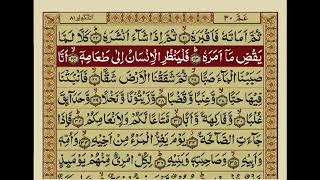 عَمَّ ٣٠ التكوير ٨١
ثُمَّ اَمَاتَهٗ فَاَقْبَرَهٗ ۙ﴿٢١﴾ ثُمَّ اِذَا شَآءَ اَنْشَرَهٗ ؕ﴿٢٢﴾ كَلَّا لَمَّا
يَقْضِ مَاۤ اَمَرَهٗ ؕ﴿٢٣﴾ فَلْيَنْظُرِ الْاِنْسَانُ اِلٰى طَعَامِهٖۤ ۙ﴿٢٤﴾ اَنَّا
صَبَبْنَا الْمَآءَ صَبًّا ۙ﴿٢٥﴾ ثُمَّ شَقَقْنَا الْاَرْضَ شَقًّا ۙ﴿٢٦﴾ فَاَنْۢبَتْنَا
فِيْهَا حَبًّا ۙ﴿٢٧﴾ وَّعِنَبًا وَّقَضْبًا ۙ﴿٢٨﴾ وَّزَيْتُوْنًا وَّنَخْلًا ۙ﴿٢٩﴾ وَّحَدَآئِقَ
غُلْبًا ۙ﴿٣٠﴾ وَّفَاكِهَةً وَّاَبًّا ۙ﴿٣١﴾ مَّتَاعًا لَّكُمْ وَلِاَنْعَامِكُمْ ؕ﴿٣٢﴾ فَاِذَا
جَآءَتِ الصَّآخَّةُ ۫﴿٣٣﴾ يَوْمَ يَفِرُّ الْمَرْءُ مِنْ اَخِيْهِ ۙ﴿٣٤﴾ وَاُمِّهٖ
وَاَبِيْهِ ۙ﴿٣٥﴾ وَصَاحِبَتِهٖ وَبَنِيْهِ ؕ﴿٣٦﴾ لِكُلِّ امْرِئٍ مِّنْهُمْ يَوْمَئِذٍ